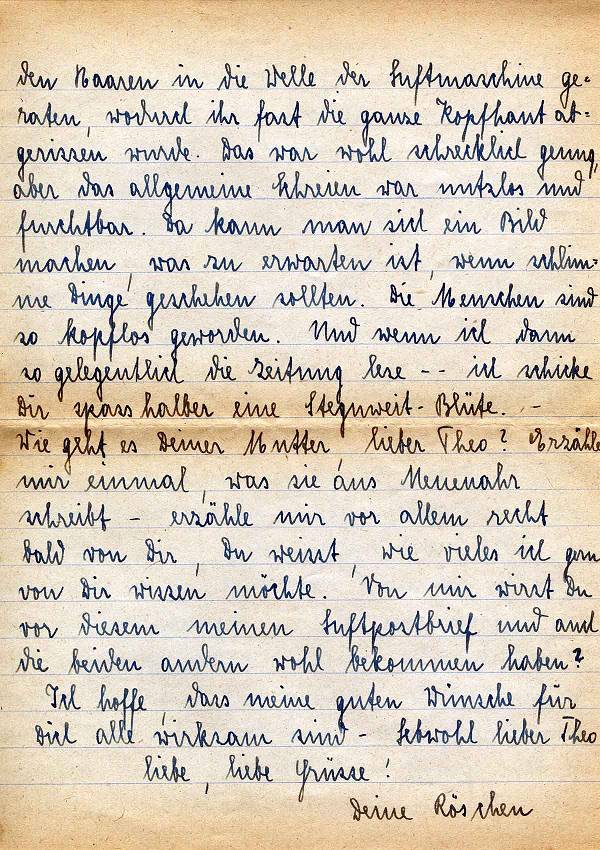 den Haaren in die Welle der Luftmaschine ge-
raten, wodurch ihr fast die ganze Kopfhaut ab-
gerissen wurde. Das war wohl schrecklich genug,
aber das allgemeine Schreien war nutzlos und
furchtbar. Da kann man sich ein Bild
machen, was zu erwarten ist, wenn schlim-
me Dinge geschehen sollten. Die Menschen sind
so kopflos geworden. Und wenn ich dann
so gelegentlich die Zeitung lese -- ich schicke
Dir spasshalber eine Stegnweit-Blüte. -
Wie geht es Deiner Mutter, lieber Theo? Erzähle
mir einmal, was sie aus Neuenahr
schreibt - erzähle mir vor allem recht
bald von Dir, Du weisst, wie vieles ich gern
von Dir wissen möchte. Von mir wirst Du
vor diesem meinen Luftpostbrief und auch
die beiden andern wohl bekommen haben?
Ich hoffe, dass meine guten Wünsche für
Dich alle wirksam sind - Lebwohl lieber Theo
liebe, liebe Grüsse!
Deine Röschen